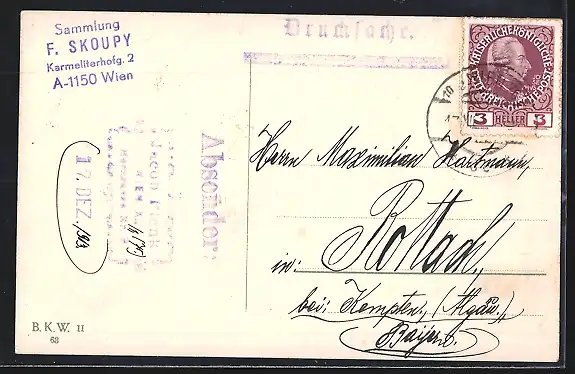 Sammlung
F. SKOUPY
Karmeliterhofg. 2
A-1150 Wien
Drucksache.
KAISERLICHE KÖNIGLICHE
ÖSTERREICHISCHE POST
3 HELLER 3
Absender:
17. DEZ.
Herrn Maximilian Hartmann,
Rottach,
in:
bei Kempten, (Algäu.),
Bayern.
B.K.W. II
63